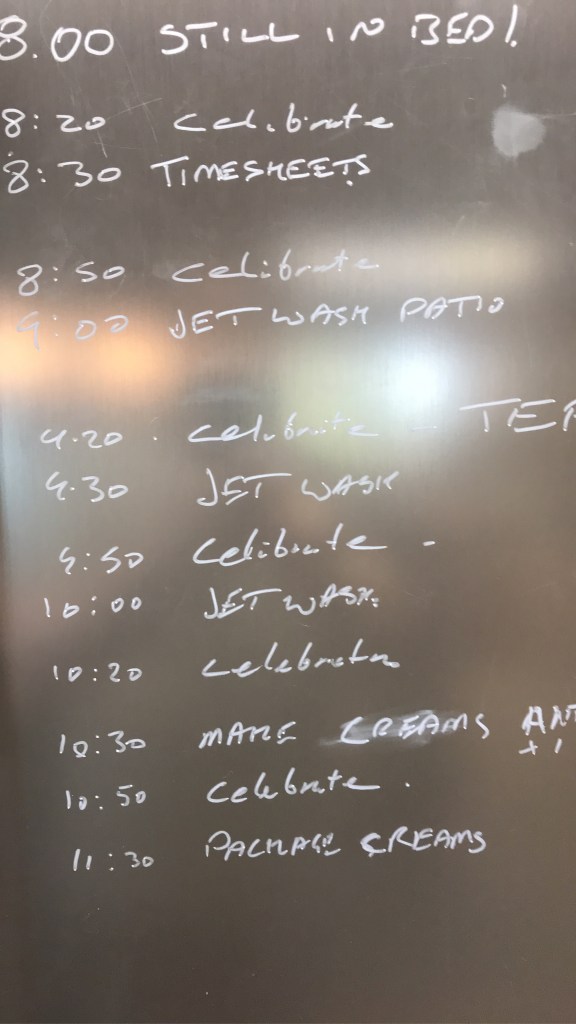 8.00 STILL IN BED!
8:20 Celibrate
8:30 TIMESHEETS
8:50 Celibrate
9:00 JET WASH PATIO
9.20 . Celibrate - TER
9.30 JET WASH
9:50 Celibrate -
10:00 JET WASH.
10:20 Celebration
10:30 MAKE CREAMS ANT
+1
10:50 Celebrate .
11:30 PACKAGE CREAMS